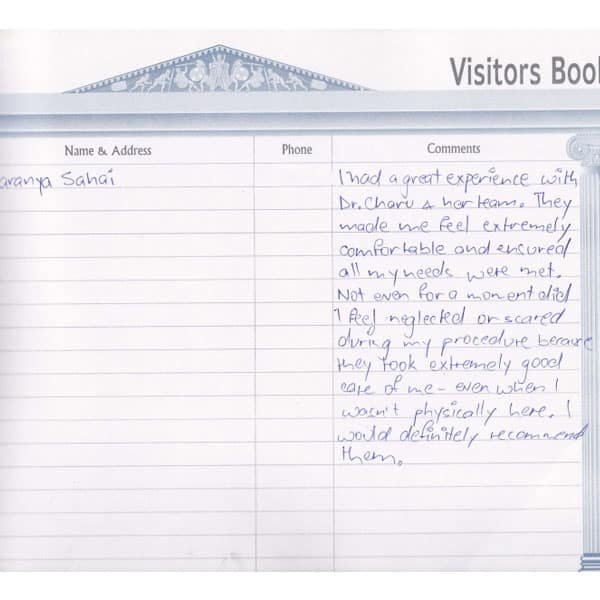 Visitors Boo
Name & Address
Phone
Comments
aranya Sahai
I had a great experience with
Dr. Charu & her team. They
made me feel extremely
comfortable and ensured
all my needs were met.
Not even for a moment did
I feel neglected or scared
during my procedure because
they took extremely good
care of me - even when I
wasn't physically here. I
would definitely recommend
them.